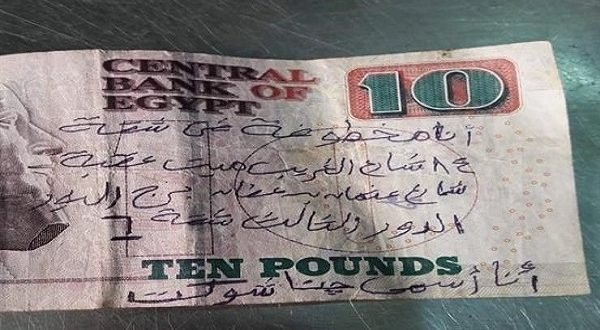 CENTRAL
BANK OF
EGYPT
10
أنا مخطوفة في شقة
٤٨ شارع الغريب ميت عقبة
شارع عثمان بن عفان برج النور
الدور الثالث شقة 6
TEN POUNDS
أنا أسمى جيتا شوكت